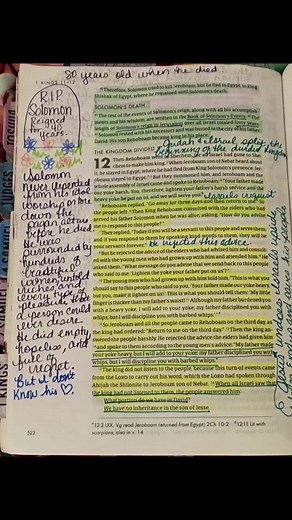 80 years old when he died.
1 KINGS 11–12
R.I.P
Solomon
reigned 40
for years.
Solomon
never repented
from his idol
worship or tore
down the
pagan altars
before he
died. He was
surrounded by
hundreds of
beautiful
women, untold
riches and
every type of
pleasure that
a person could
ever desire.
He died empty,
hopeless, and
full of
regret.
"But I don't
know his ♡
⁴⁰ Therefore, Solomon tried to kill Jeroboam, but he fled to Egypt, to King
Shishak of Egypt, where he remained until Solomon's death.
SOLOMON'S DEATH
⁴¹ The rest of the events of Solomon's reign, along with all his accomplish-
ments and his wisdom, are written in the Book of Solomon's Events. ⁴² The
length of Solomon's reign in Jerusalem over all Israel totaled forty years.
⁴³ Solomon rested with his ancestors and was buried in the city of his father
David. His son Rehoboam became king in his place.
Judah & Israel split, the
beginning of the divided kingdom
THE KINGDOM DIVIDED
12 Then Rehoboam went to Shechem, for all Israel had gone to Shechem to make him king. ² When Jeroboam son of Nebat heard about
it, he stayed in Egypt, where he had fled from King Solomon's presence. Jero-
boam stayed in Egypt. ³ But they summoned him, and Jeroboam and the
whole assembly of Israel came and spoke to Rehoboam: ⁴ "Your father made
our yoke harsh. You, therefore, lighten your father's harsh service and the
heavy yoke he put on us, and we will serve you."
Israel's request
⁵ Rehoboam replied, "Go away for three days and then return to me." So
the people left. ⁶ Then King Rehoboam consulted with the elders who had
served his father Solomon when he was alive, asking, "How do you advise
me to respond to this people?"
⁷ They replied, "Today if you will be a servant to this people and serve them,
and if you respond to them by speaking kind words to them, they will be
your servants forever."
he rejected this advice
⁸ But he rejected the advice of the elders who had advised him and consult-
ed with the young men who had grown up with him and attended him. ⁹ He
asked them, "What message do you advise that we send back to this people
who said to me, 'Lighten the yoke your father put on us'?"
¹⁰ The young men who had grown up with him told him, "This is what you
should say to this people who said to you, 'Your father made our yoke heavy,
but you, make it lighter on us!' This is what you should tell them: 'My little
finger is thicker than my father's waist! ¹¹ Although my father burdened you
with a heavy yoke, I will add to your yoke; my father disciplined you with
whips, but I will discipline you with barbed whips.'"
¹² So Jeroboam and all the people came to Rehoboam on the third day, as
the king had ordered: "Return to me on the third day." ¹³ Then the king an-
swered the people harshly. He rejected the advice the elders had given him
¹⁴ and spoke to them according to the young men's advice: "My father made
your yoke heavy, but I will add to your yoke; my father disciplined you with
whips, but I will discipline you with barbed whips."
¹⁵ The king did not listen to the people, because this turn of events came
from the LORD to carry out his word, which the LORD had spoken through
Ahijah the Shilonite to Jeroboam son of Nebat. ¹⁶ When all Israel saw that
the king had not listened to them, the people answered him:
What portion do we have in David?
We have no inheritance in the son of Jesse.
522
12:2 LXX, Vg read Jeroboam returned from Egypt; 2Ch 10:2
12:11 Lit with
scorpions, also in v. 14
JOSHUA
JUDGES
KINGS